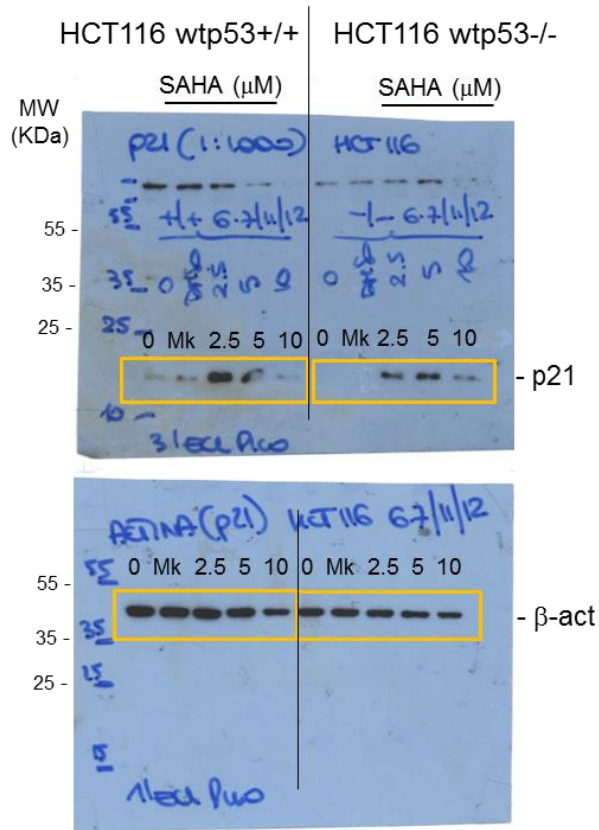 HCT116 wtp53+/+ HCT116 wtp53-/-
SAHA (μM) SAHA (μM)
MW
(KDa)
p21 (1:1000) HCT 116
55 +/+ 6-7/11/12 -/- 6-7/11/12
55 -
35 0 2.5 5 10 0 2.5 5 10
35 -
25 -
25
0 Mk 2.5 5 10 0 Mk 2.5 5 10
- p21
10
3' ECL PICO
ACTINA (p21) HCT 116 6-7/11/12
55 0 Mk 2.5 5 10 0 Mk 2.5 5 10
55 -
- β-act
35
35 -
25
25 -
15
1' ECL PICO